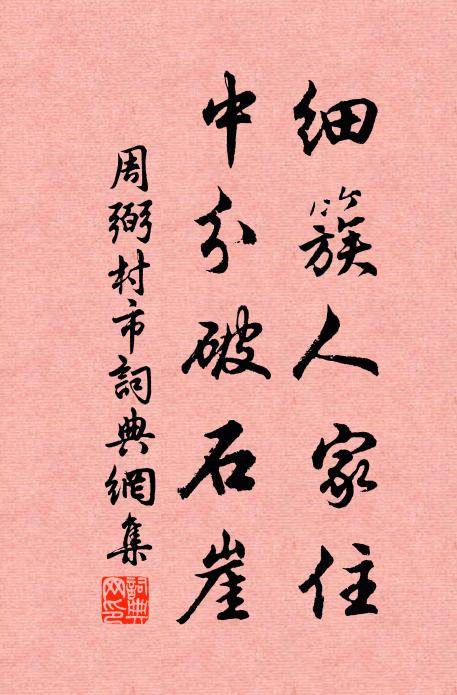 细簇人家住
中分破石崖
周弼村市詞典網集
詞典网印